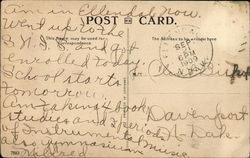 am in Ellendale now.
Went up to the
POST CARD.
This space may be used for
Correspondence
The Address to be written here
S. N. I. S. and got
enrolled today.
School starts
tomorrow.
Am taking 4 book
studies and 2 periods
of Instrumental Music
also Gymnasium
Mildred
SEP
6 PM
1909
N. DAK.
Davenport
N. Dak.